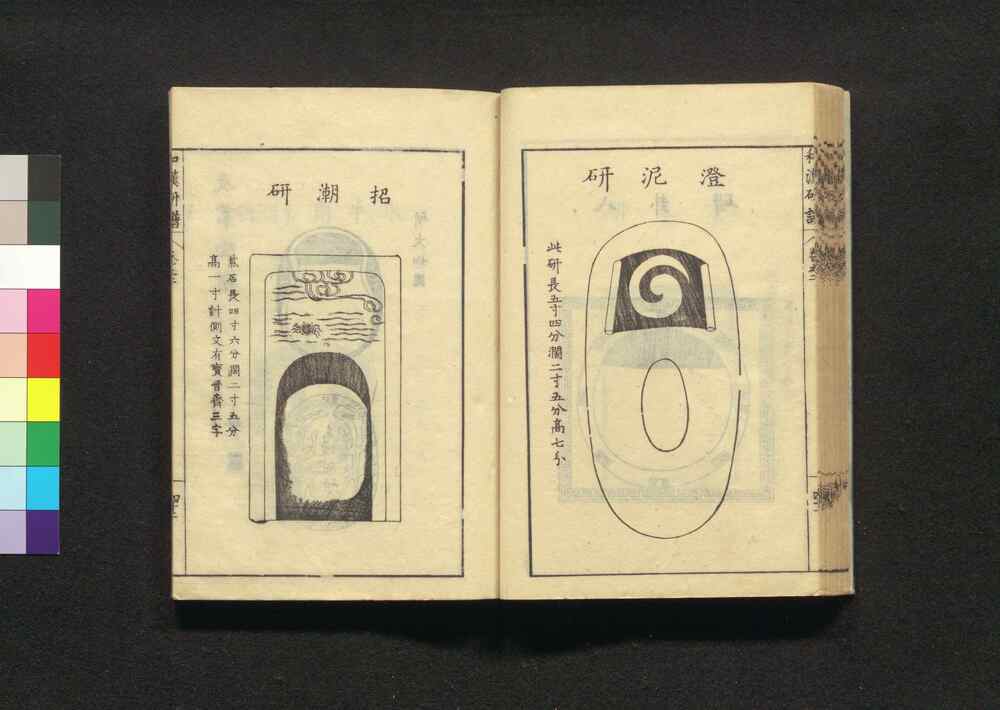 澄泥研
此研長五寸四分濶二寸五分高七分
招潮研
長四寸六分濶二寸五分
高一寸計側文有寶晉齋三字
和漢研譜